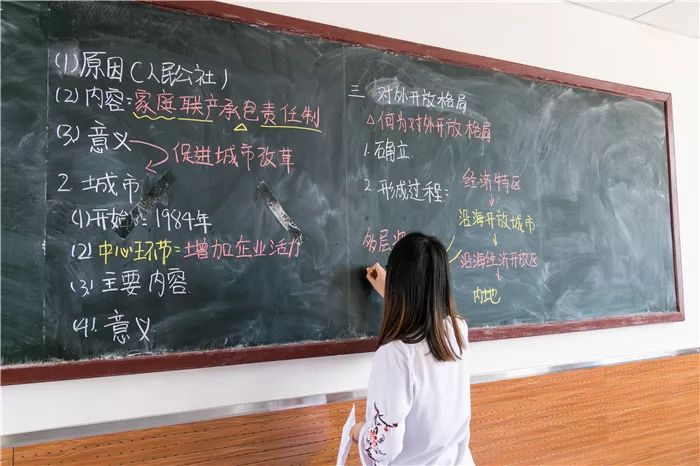 (1)原因(人民公社)
(2)内容:家庭联产承包责任制
(3)意义
促进城市改革
2 城市
(1)开始:1984年
(2)中心环节:增加企业活力
(3)主要内容
(4)意义
三 对外开放格局
△何为对外开放格局
1.确立
2.形成过程:
经济特区
沿海开放城市
沿海经济开放区
内地
多层次